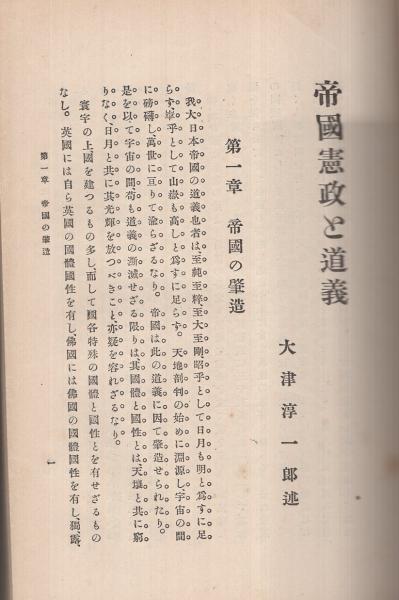 帝國憲政と道義
大津淳一郎述
第一章　帝國の肇造
我大日本帝國の道義也者は、至純至粹至大至剛、昭乎として日月も明と爲すに足
らず、崒乎として山嶽も高しと爲すに足らす。天地剖判の始めに淵源し、宇宙の間
に磅礴し、萬世に亘りて渝らざるなり。帝國は此の道義に因て肇造せられたり。
是を以て宇宙の間苟も道義の澌滅せざる限りは、其國體と國性とは、天壤と共に窮
りなく、日月と共に其光輝を放つべきこと、亦疑を容れざるなり。
寰宇の上、國を建つるもの多し、而して國各特殊の國體と國性とを有せざるもの
なし。英國には自ら英國の國體國性を有し、佛國には佛國の國體國性を有し、獨、露、
第一章　帝國の肇造
一